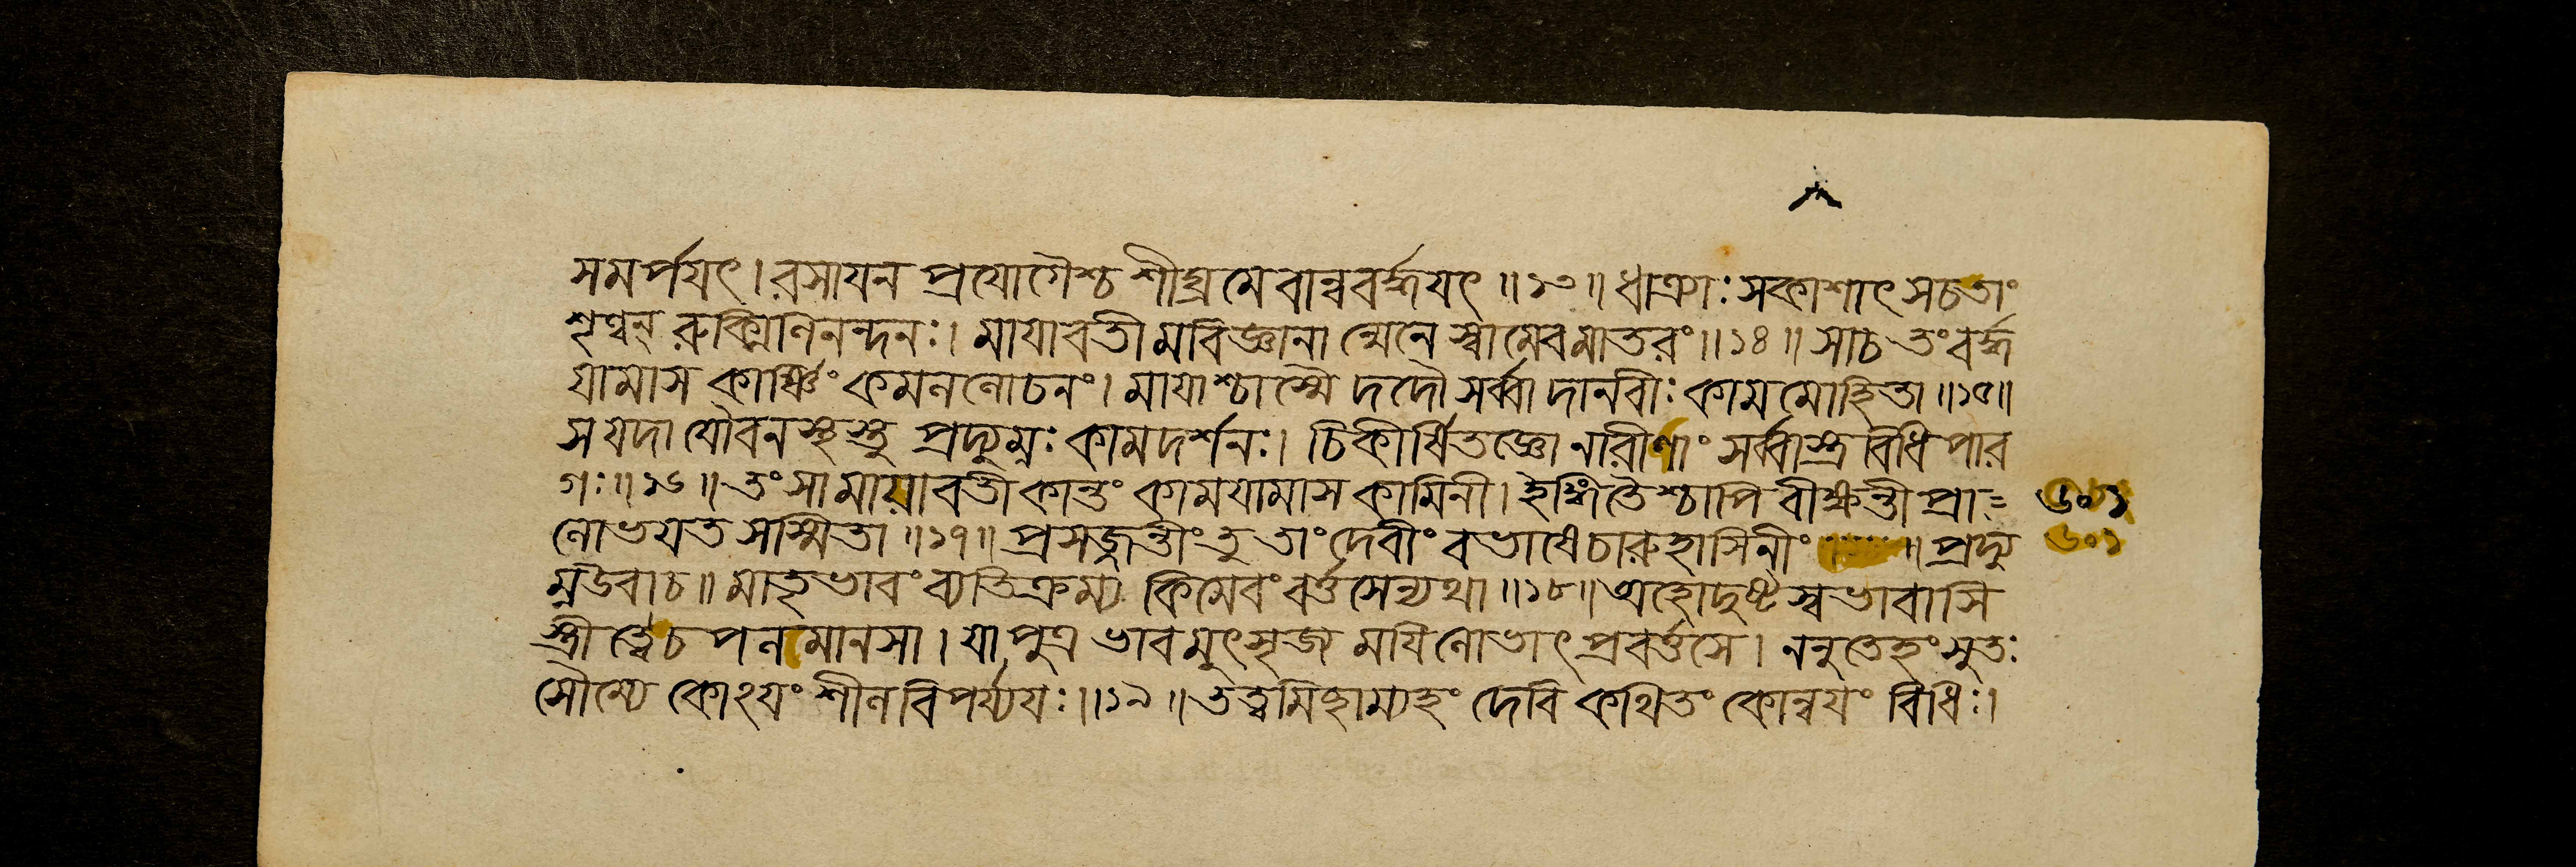 সমর্পযৎ। রসাযন প্রযোগৈশ্চ শীঘ্রমেবান্ববর্দ্ধযৎ ॥১৩॥ ধাত্র্যাঃ সকাশাৎ সচতাং
শৃণ্বন্ রুক্মিণিনন্দনঃ। মাযাবতীমবিজ্ঞানা ন্মেনে স্বামেবমাতরং॥১৪॥ সাচ তং বর্দ্ধ
যামাস কার্ষ্ণিং কমললোচনং। মাযাশ্চাস্মৈ দদৌ সর্ব্বা দানবীঃ কামমোহিতা ॥১৫॥
স যদা যৌবনস্থস্তু প্রদ্যুম্নঃ কামদর্শনঃ। চিকীর্ষিতজ্ঞো নারীণাং সর্ব্বাস্ত্র বিধি পার
গঃ॥১৬॥ তং সা মায়াবতী কান্তং কামযামাস কামিনী। ইঙ্গিতৈশ্চাপি বীক্ষন্তী প্রা=
লোভযত সস্মিতা ॥১৭॥ প্রসজ্জন্তীং তু তাং দেবীং বভাষে চারুহাসিনীং ॥ প্রদ্যু
ম্নউবাচ॥ মাতৃভাবং ব্যতিক্রম্য কিমেবং বর্ত্তসেন্যথা ॥১৮॥ অহোদুষ্টস্বভাবাসি
স্ত্রীত্বেচ পলমানসা। যা পুত্র ভাবমুৎসৃজ্য মযি লোভাৎ প্রবর্ত্তসে। ননুতেহং সুতঃ
সৌম্যে কোঽযং শীলবিপর্য্যযঃ॥১৯॥ তত্ত্বমিচ্ছাম্যহং দেবি কথিতং কোন্বযং বিধিঃ।
৬০১
৬০১